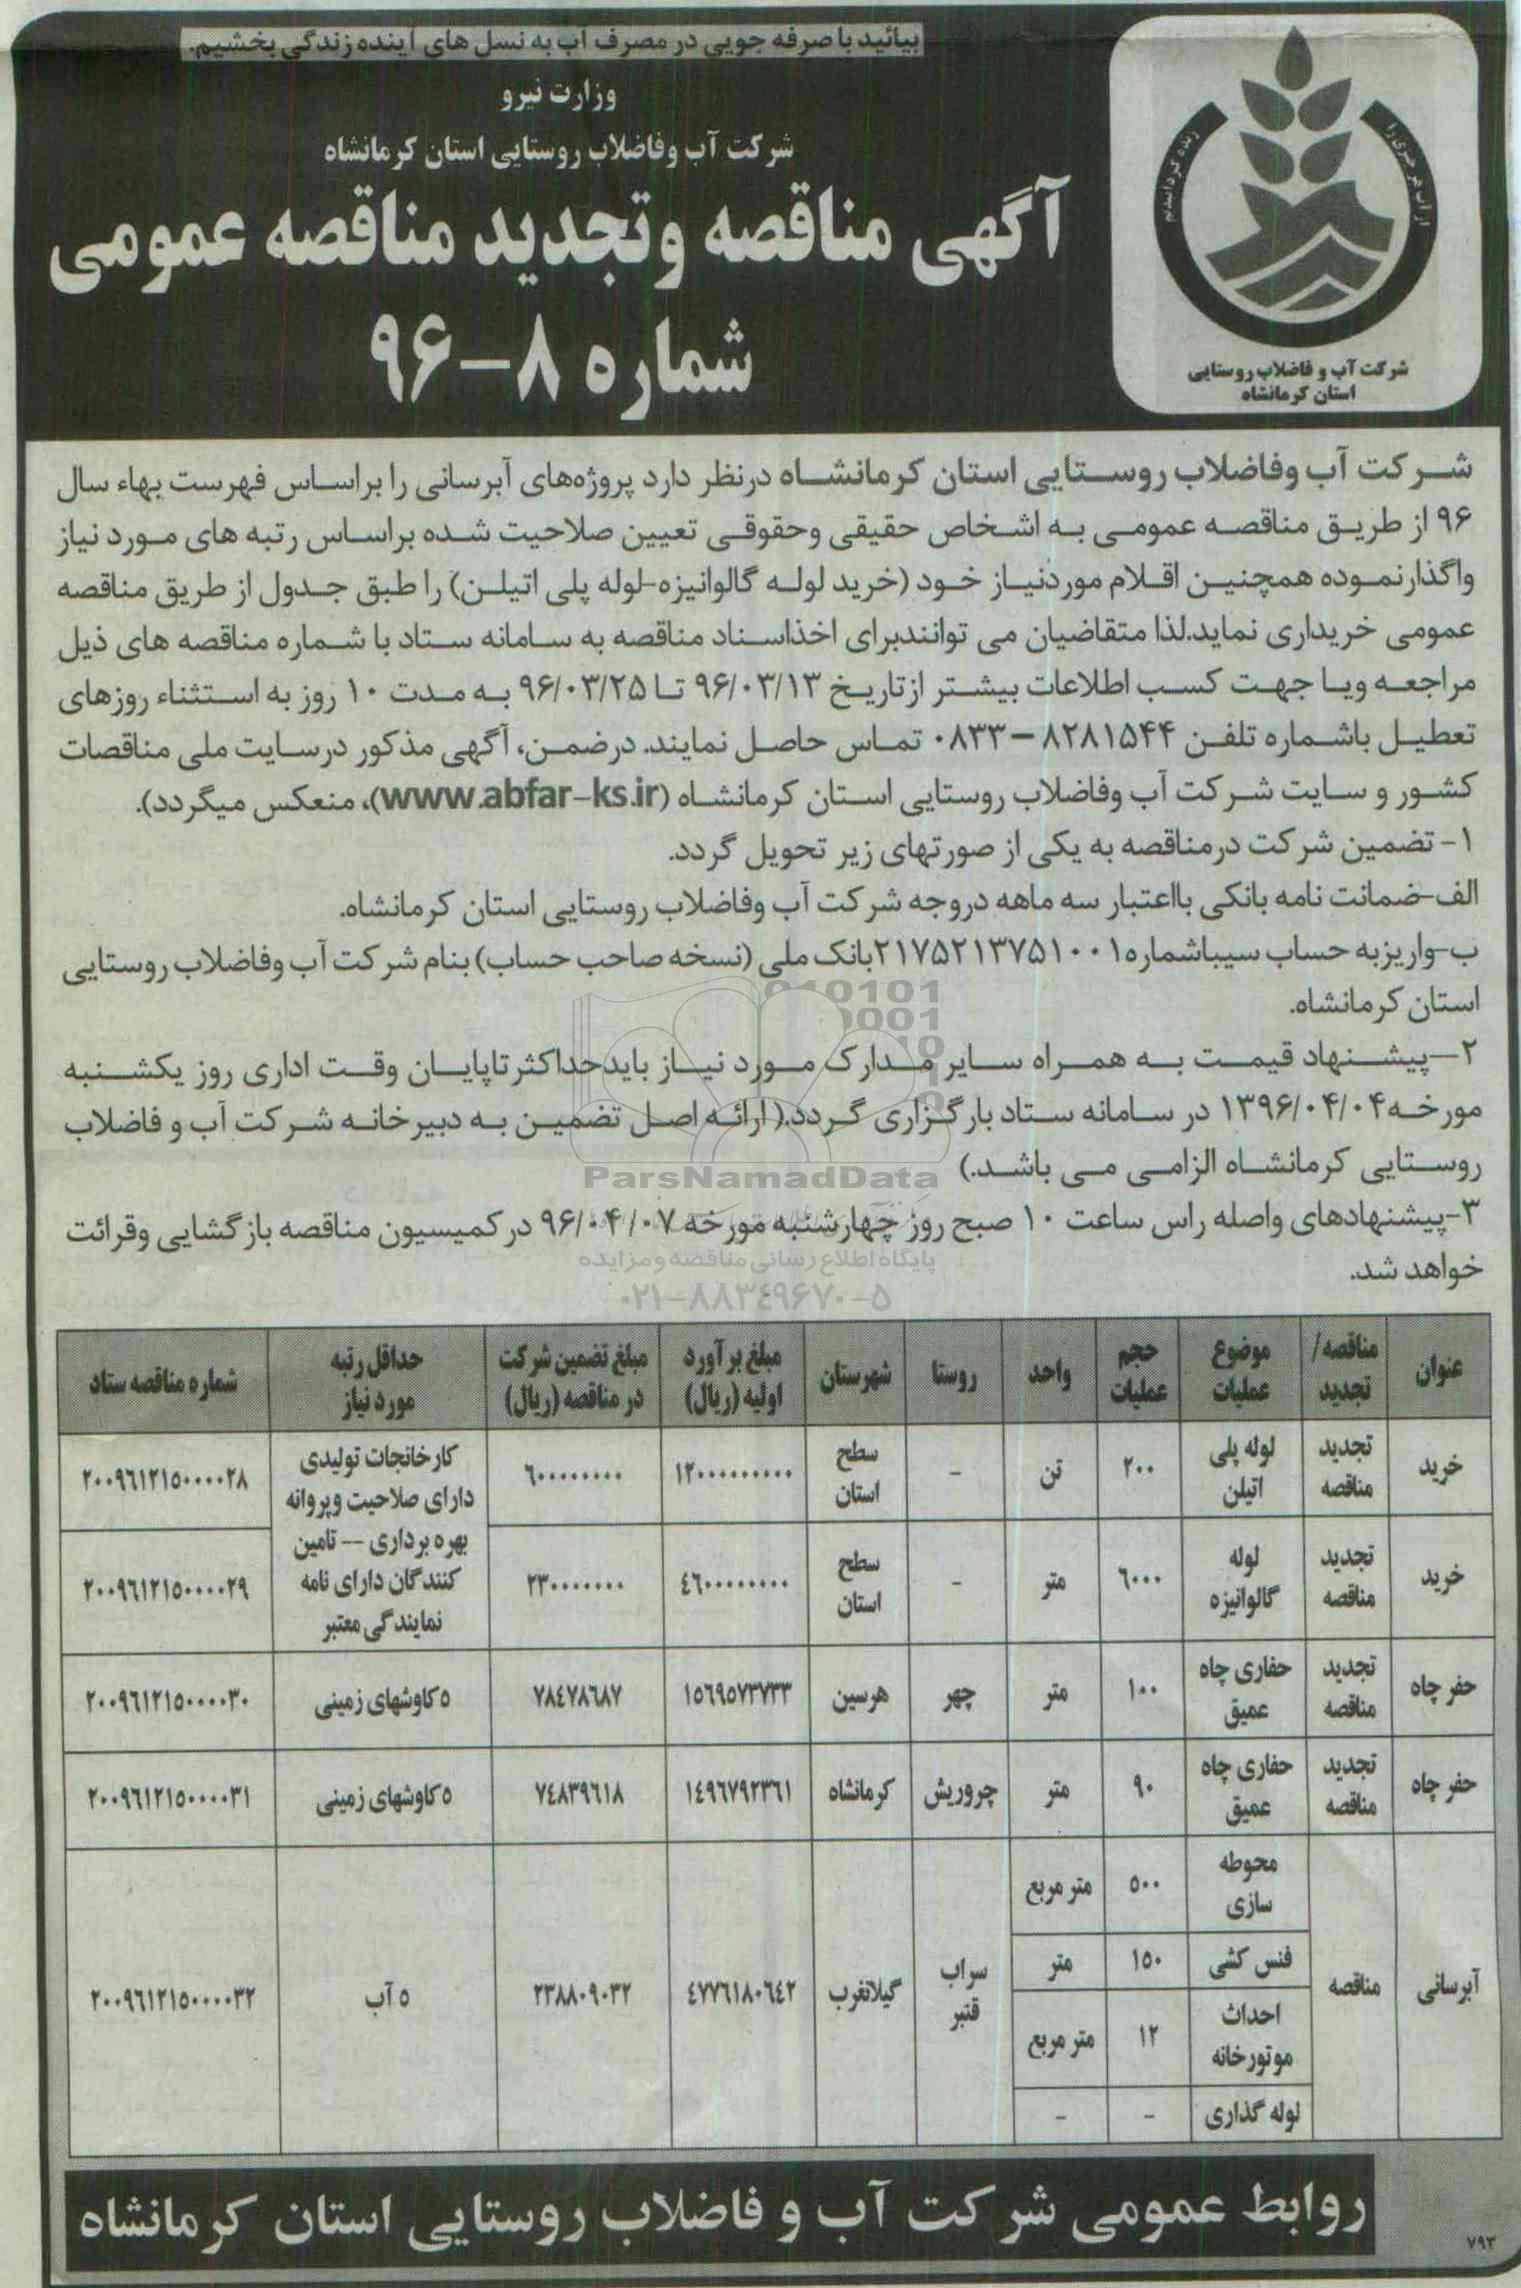 بیائید با صرفه جویی در مصرف آب به نسل های آینده زندگی بخشیم.
وزارت نیرو
شرکت آب وفاضلاب روستایی استان کرمانشاه
آگهی مناقصه وتجدید مناقصه عمومی
شماره ۸-۹۶
از آب هر چیزی را زنده گردانیدیم
شرکت آب و فاضلاب روستایی
استان کرمانشاه
شرکت آب وفاضلاب روستایی استان کرمانشاه درنظر دارد پروژه‌های آبرسانی را براساس فهرست بهاء سال
۹۶ از طریق مناقصه عمومی به اشخاص حقیقی وحقوقی تعیین صلاحیت شده براساس رتبه های مورد نیاز
واگذارنموده همچنین اقلام موردنیاز خود (خرید لوله گالوانیزه-لوله پلی اتیلن) را طبق جدول از طریق مناقصه
عمومی خریداری نماید.لذا متقاضیان می توانندبرای اخذاسناد مناقصه به سامانه ستاد با شماره مناقصه های ذیل
مراجعه ویا جهت کسب اطلاعات بیشتر ازتاریخ ۹۶/۰۳/۱۳ تا ۹۶/۰۳/۲۵ به مدت ۱۰ روز به استثناء روزهای
تعطیل باشماره تلفن ۸۲۸۱۵۴۴–۰۸۳۳ تماس حاصل نمایند. درضمن، آگهی مذکور درسایت ملی مناقصات
کشور و سایت شرکت آب وفاضلاب روستایی استان کرمانشاه (www.abfar-ks.ir)، منعکس میگردد).
۱- تضمین شرکت درمناقصه به یکی از صورتهای زیر تحویل گردد.
الف-ضمانت نامه بانکی بااعتبار سه ماهه دروجه شرکت آب وفاضلاب روستایی استان کرمانشاه.
ب-واریزبه حساب سیباشماره۲۱۷۵۲۱۳۷۵۱۰۰۱بانک ملی (نسخه صاحب حساب) بنام شرکت آب وفاضلاب روستایی
استان کرمانشاه.
۲–پیشنهاد قیمت به همراه سایر مدارک مورد نیاز بایدحداکثرتاپایان وقت اداری روز یکشنبه
مورخه۱۳۹۶/۰۴/۰۴ در سامانه ستاد بارگزاری گردد.( ارائه اصل تضمین به دبیرخانه شرکت آب و فاضلاب
روستایی کرمانشاه الزامی می باشد.)
۳-پیشنهادهای واصله راس ساعت ۱۰ صبح روز چهارشنبه مورخه ۹۶/۰۴/۰۷ درکمیسیون مناقصه بازگشایی وقرائت
خواهد شد.
ParsNamadData
پایگاه اطلاع رسانی مناقصه و مزایده
۰۲۱-۸۸۳۴۹۶۷۰-۵
عنوان | مناقصه/ تجدید | موضوع عملیات | حجم عملیات | واحد | روستا | شهرستان | مبلغ برآورد اولیه (ریال) | مبلغ تضمین شرکت در مناقصه (ریال) | حداقل رتبه مورد نیاز | شماره مناقصه ستاد
خرید | تجدید مناقصه | لوله پلی اتیلن | ۲۰۰ | تن | - | سطح استان | ۱۲۰۰۰۰۰۰۰۰۰ | ۶۰۰۰۰۰۰۰۰ | کارخانجات تولیدی دارای صلاحیت وپروانه بهره برداری -- تامین کنندگان دارای نامه نمایندگی معتبر | ۲۰۰۹۶۱۲۱۵۰۰۰۰۲۸
خرید | تجدید مناقصه | لوله گالوانیزه | ۶۰۰۰ | متر | - | سطح استان | ۴۶۰۰۰۰۰۰۰۰ | ۲۳۰۰۰۰۰۰۰ | ۲۰۰۹۶۱۲۱۵۰۰۰۰۲۹
حفر چاه | تجدید مناقصه | حفاری چاه عمیق | ۱۰۰ | متر | چهر | هرسین | ۱۵۶۹۵۷۳۷۳۳ | ۷۸۴۷۸۶۸۷ | ۵ کاوشهای زمینی | ۲۰۰۹۶۱۲۱۵۰۰۰۰۳۰
حفر چاه | تجدید مناقصه | حفاری چاه عمیق | ۹۰ | متر | چروریش | کرمانشاه | ۱۴۹۶۷۹۲۳۶۱ | ۷۴۸۳۹۶۱۸ | ۵ کاوشهای زمینی | ۲۰۰۹۶۱۲۱۵۰۰۰۰۳۱
آبرسانی | مناقصه | محوطه سازی | ۵۰۰ | متر مربع | سراب قنبر | گیلانغرب | ۴۷۷۶۱۸۰۶۴۲ | ۲۳۸۸۰۹۰۳۲ | ۵ آب | ۲۰۰۹۶۱۲۱۵۰۰۰۰۳۲
فنس کشی | ۱۵۰ | متر
احداث موتورخانه | ۱۲ | متر مربع
لوله گذاری | - | -
روابط عمومی شرکت آب و فاضلاب روستایی استان کرمانشاه
۷۹۳